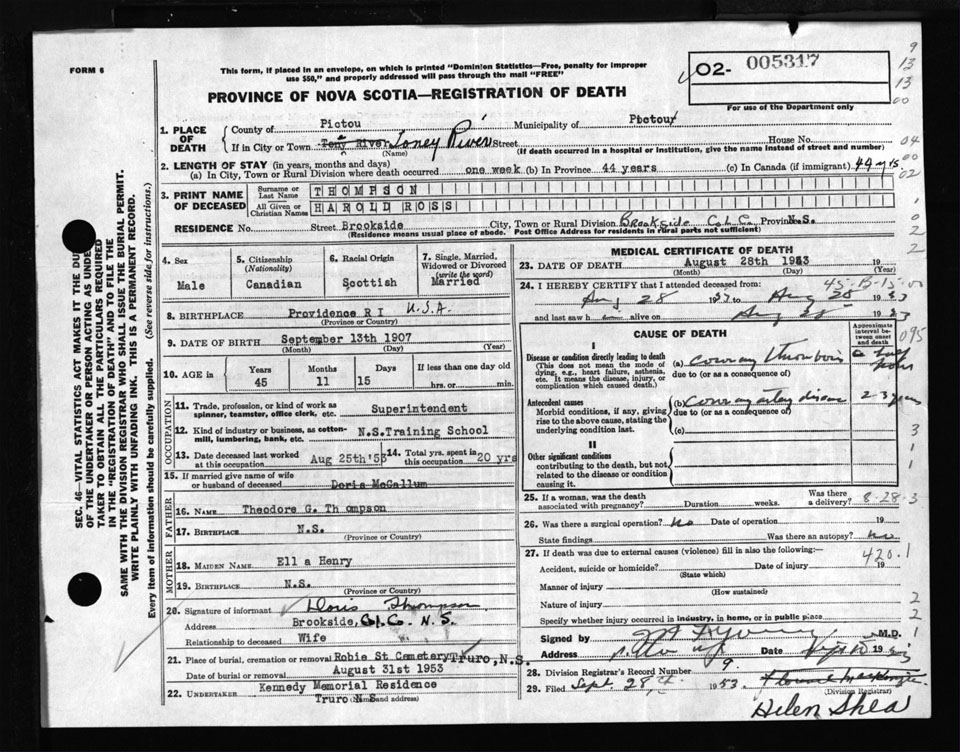 FORM 6
This form, if placed in an envelope, on which is printed "Dominion Statistics—Free, penalty for improper
use $50," and properly addressed will pass through the mail "FREE"
O2- 005317
For use of the Department only
PROVINCE OF NOVA SCOTIA—REGISTRATION OF DEATH
9
13
13
00
04
00
02
1. PLACE OF DEATH
County of Pictou Municipality of Pictou
If in City or Town Tony River Toney River Street House No.
(Name) (If death occurred in a hospital or institution, give the name instead of street and number)
2. LENGTH OF STAY (in years, months and days)
(a) In City, Town or Rural Division where death occurred one week (b) In Province 44 years (c) In Canada (if immigrant) 44 yrs
3. PRINT NAME OF DECEASED
Surname or Last Name THOMPSON
All Given or Christian Names HAROLD ROSS
RESIDENCE No. Street Brookside City, Town or Rural Division Brookside Col. Co. Province N.S.
(Residence means usual place of abode. Post Office Address for residents in rural parts not sufficient)
4. Sex
Male
5. Citizenship (Nationality)
Canadian
6. Racial Origin
Scottish
7. Single, Married, Widowed or Divorced (write the word)
Married
8. BIRTHPLACE Providence R I U.S.A.
(Province or Country)
9. DATE OF BIRTH September 13th 1907
(Month) (Day) (Year)
10. AGE in Years Months Days If less than one day old
45 11 15 hrs. or min.
OCCUPATION
11. Trade, profession, or kind of work as spinner, teamster, office clerk, etc. Superintendent
12. Kind of industry or business, as cotton-mill, lumbering, bank, etc. N.S.Training School
13. Date deceased last worked at this occupation Aug 25th '53
14. Total yrs. spent in this occupation 20 yrs
15. If married give name of wife or husband of deceased Doris McCallum
FATHER
16. Name Theodore G. Th ompson
17. BIRTHPLACE N.S.
(Province or Country)
MOTHER
18. MAIDEN NAME Ell a Henry
19. BIRTHPLACE N.S.
(Province or Country)
20. Signature of informant Doris Thompson
Address Brookside, Col. Co. N.S.
Relationship to deceased Wife
21. Place of burial, cremation or removal Robie St Cemetary Truro, N.S.
Date of burial or removal August 31st 1953
22. UNDERTAKER Kennedy Memorial Residence
Truro N S
(Name and address)
MEDICAL CERTIFICATE OF DEATH
23. DATE OF DEATH August 28th 1953 19
(Month) (Day) (Year)
24. I HEREBY CERTIFY that I attended deceased from:
Aug 28 1953 to Aug 28 1953
and last saw h alive on Aug 28 1953
CAUSE OF DEATH
Approximate interval between onset and death
I
Disease or condition directly leading to death
(This does not mean the mode of dying, e.g., heart failure, asthenia, etc. It means the disease, injury, or complication which caused death.)
(a) Coronary Thrombosis
due to (or as a consequence of)
Antecedent causes
Morbid conditions, if any, giving rise to the above cause, stating the underlying condition last.
(b) Coronary artery disease 2-3 years
due to (or as a consequence of)
(c)
II
Other significant conditions
contributing to the death, but not related to the disease or condition causing it.
25. If a woman, was the death associated with pregnancy? Duration weeks. Was there a delivery? 8-28-3
26. Was there a surgical operation? No Date of operation 19
State findings Was there an autopsy? No
27. If death was due to external causes (violence) fill in also the following:— 420.1
Accident, suicide or homicide? Date of injury 19
(State which)
Manner of injury
(How sustained)
Nature of injury
Specify whether injury occurred in industry, in home, or in public place
Signed by M.D.
Address Date Sept 10 1953
28. Division Registrar's Record Number 9.
29. Filed Sept. 28, 1953. Florence MacKenzie
(Division Registrar)
Helen Shea
SEC. 46—VITAL STATISTICS ACT MAKES IT THE DU
OF THE UNDERTAKER OR PERSON ACTING AS UNDE
TAKER TO OBTAIN ALL THE PARTICULARS REQUIRED
IN THE "REGISTRATION OF DEATH" AND TO FILE THE
SAME WITH THE DIVISION REGISTRAR WHO SHALL ISSUE THE BURIAL PERMIT.
WRITE PLAINLY WITH UNFADING INK. THIS IS A PERMANENT RECORD.
Every item of information should be carefully supplied. (See reverse side for instructions.)